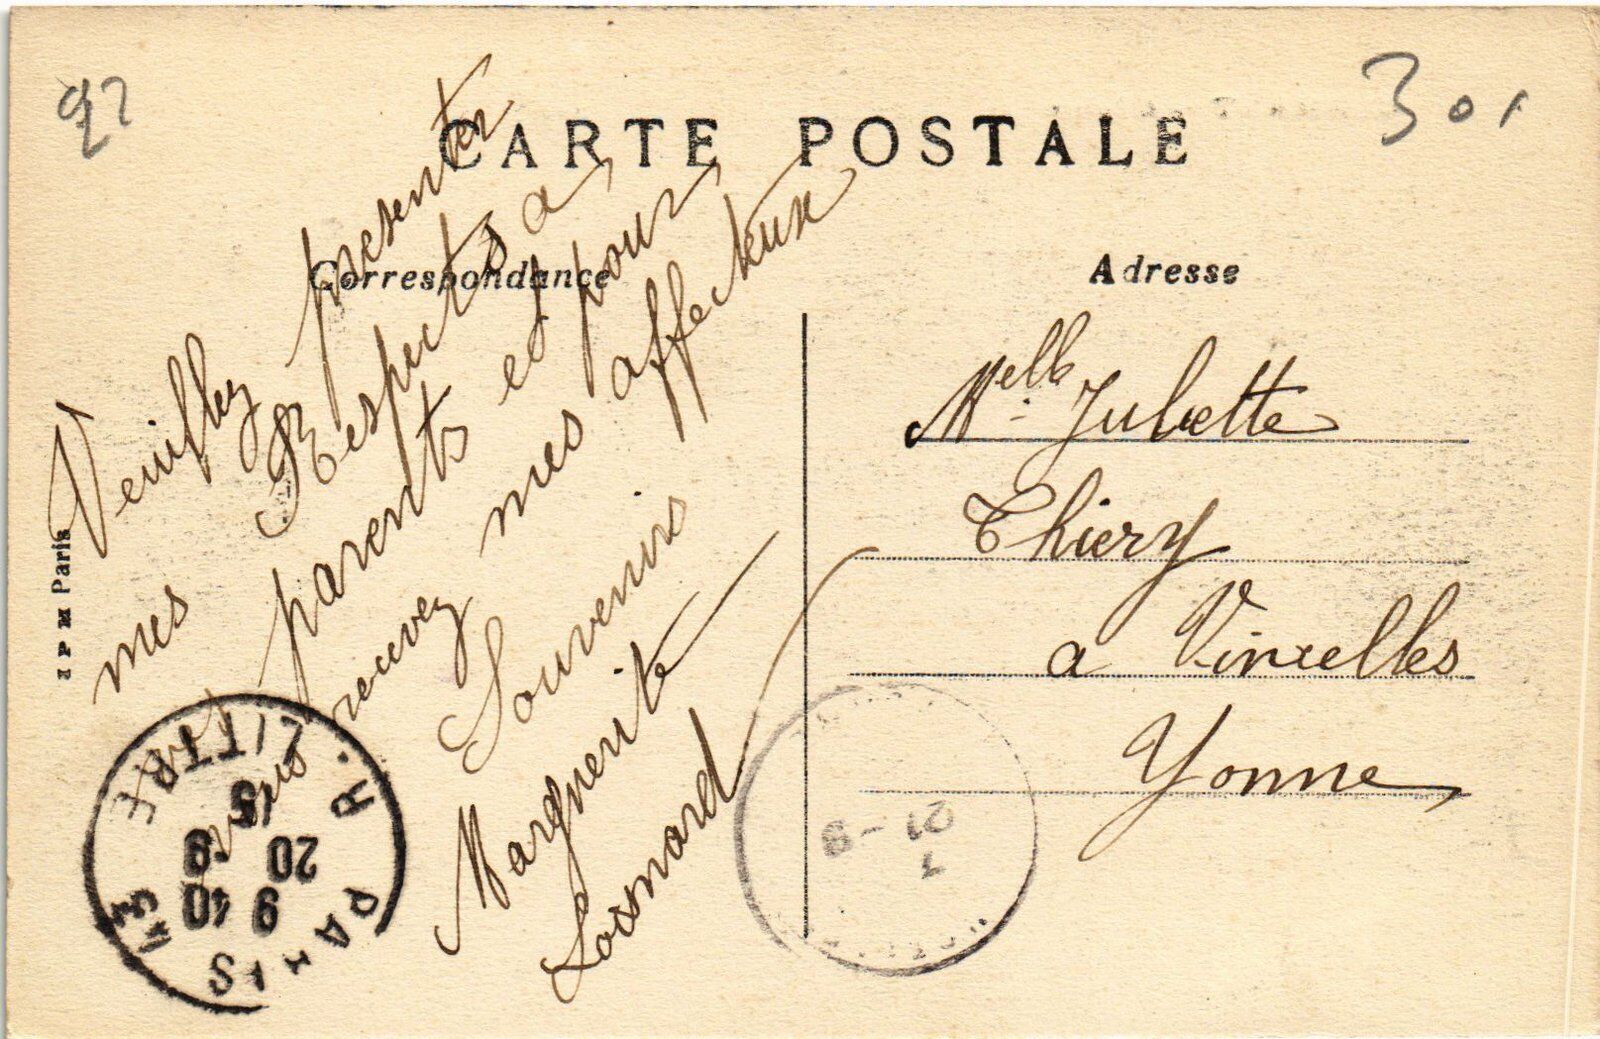 CARTE POSTALE
Correspondance
Adresse
Veuillez presenter
mes Respects a
vos parents et pour
vous recevez mes affectueux
Souvenirs
Marguerite
Melle Juliette
Thiery
a Vincelles
Yonne
I P M Paris
PARIS
R. LITTRÉ
9 40
20 9
15
21 -9
301